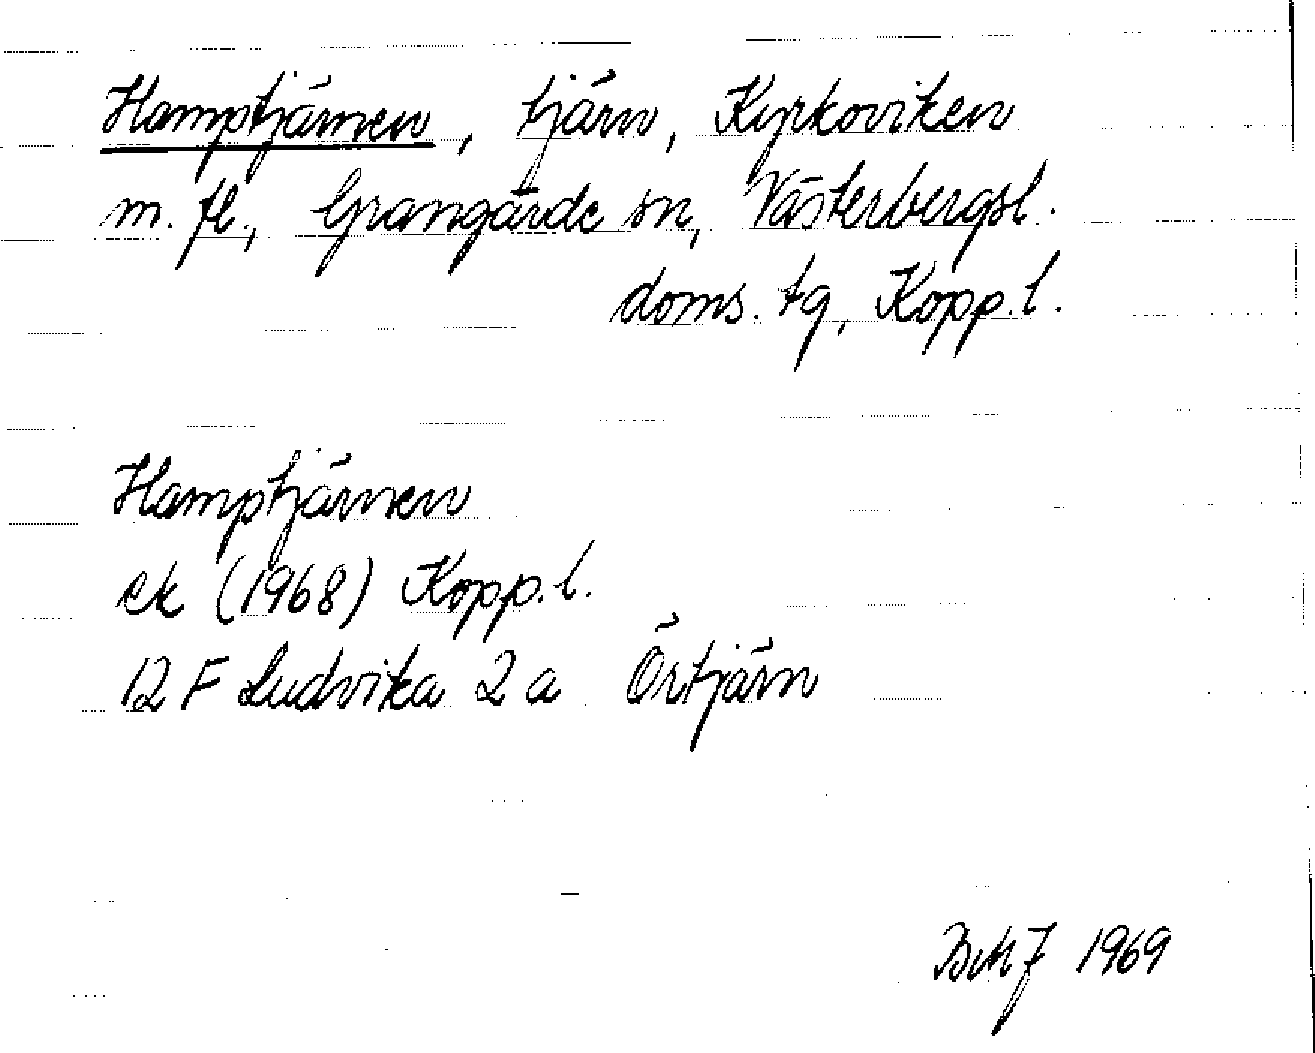 Hamptjärnen, tjärn, Kyrkoviken
m. fl., Grangärde sn, Västerbergsl.
doms. tg, Kopp. l.
Hamptjärnen
ek (1968) Kopp. l.
12 F Ludvika 2 a Örtjärn
1969